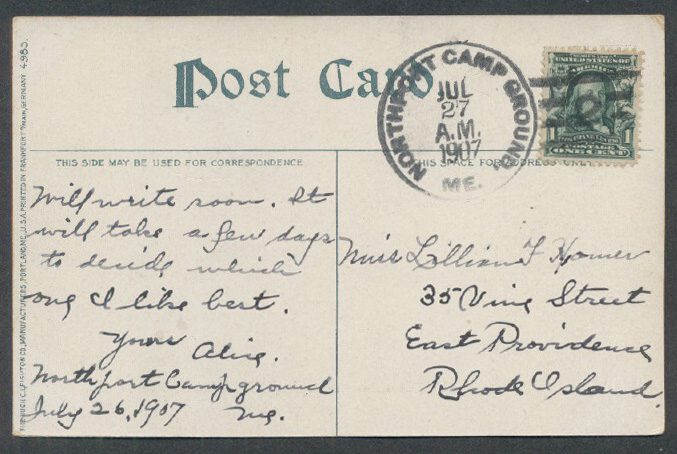 Post Card
NORTHPORT CAMP GROUND,
JUL
27
A.M.
1907
ME.
UNITED STATES OF
AMERICA
1 1
POSTAGE
ONE CENT
THIS SIDE MAY BE USED FOR CORRESPONDENCE
THIS SPACE FOR ADDRESS ONLY
Will write soon. It
will take a few days
to decide which
one I like best.
Yours
Alice.
Northport Campground
July 26, 1907 Me.
Miss Lillian F Homer
35 Vine Street
East Providence
Rhode Island.
THE HUGH C. LEIGHTON CO., MANUFACTURERS, PORTLAND, ME., U.S.A. PRINTED IN FRANKFORT, GERMANY 4985.